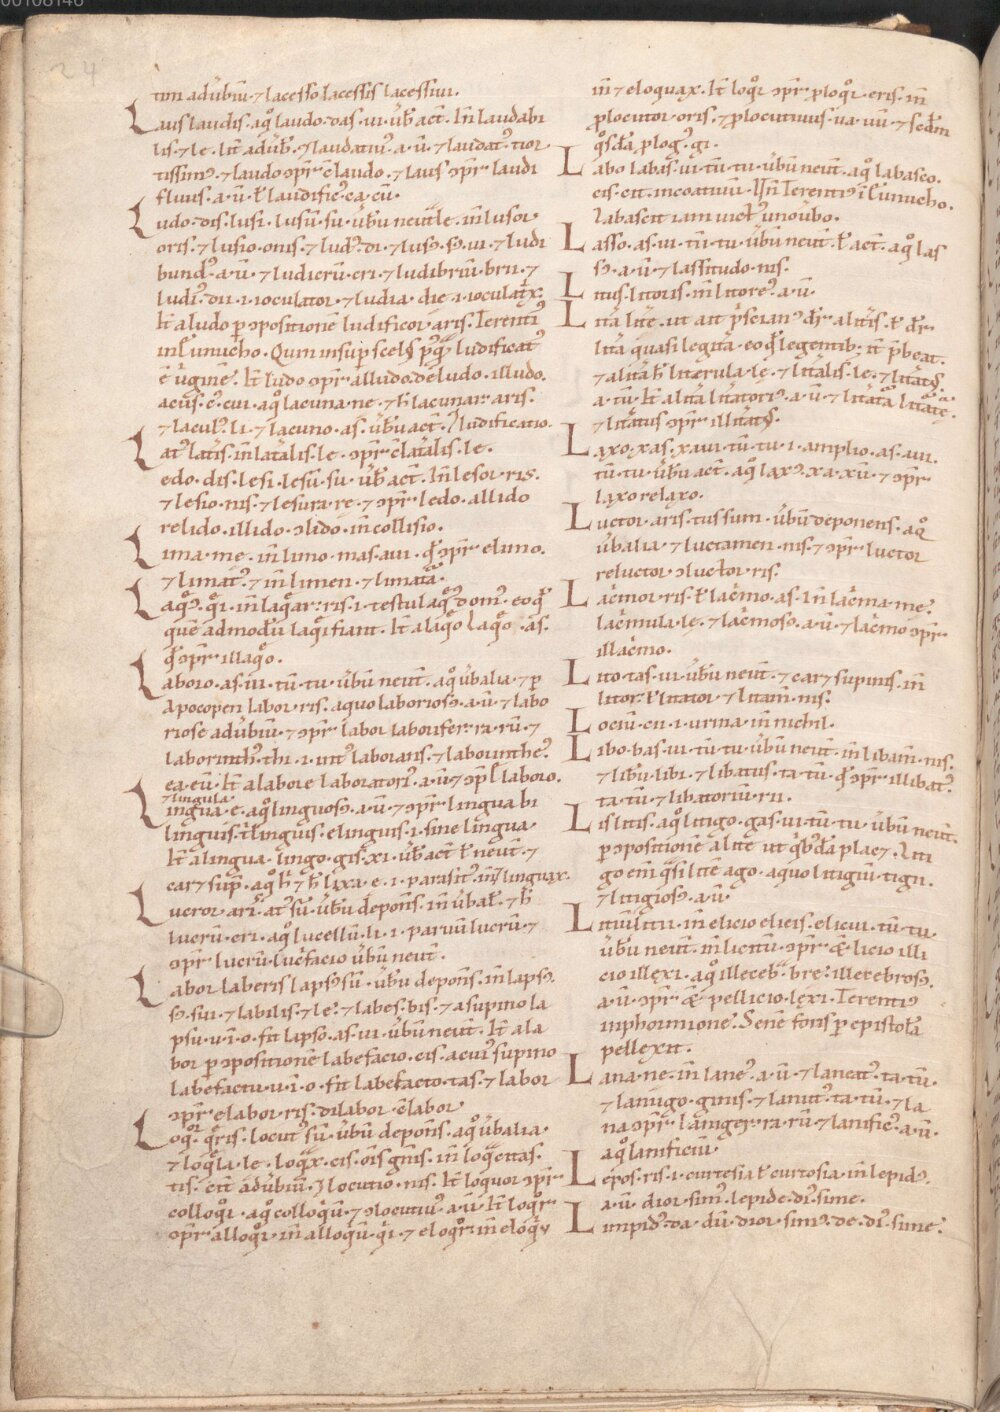 00108146
24
tim adūbiū ⁊ lacesso lacessis lacessiui.
Laus laudis. aq̊ laudo. das. ui. ūb̄ act̄. In̄ laudabi
lis ⁊ le. It̄ adūb̄. ⁊ laudatiuꝰ. a. ū. ⁊ laudatꝰ. tior
tissimꝰ. ⁊ laudo ↄpr̄ c̄laudo. ⁊ laus ↄpr̄ laudi
fluus. a. ū. ł laudificꝰ. ca. cū.
Ludo. dis. lusi. lusū. su. ūbū neut̄le. in̄ lusor
oris. ⁊ lusio. onis. ⁊ ludꝰ. di. ⁊ lusꝰ. sꝰ. ui. ⁊ ludi
bundꝰ. a. ū. ⁊ ludicrū. cri. ⁊ ludibriū. brii. ⁊
ludiꝰ. dii. i. ioculator. ⁊ ludia. die. i. ioculatⁱx.
It̄ a ludo ꝑ ↄpositionē ludificor. aris. Terentiꝰ
in eunucho. Quin insup̄ scelꝰ p̄q̄ ludificatꝰ
ē uⁱginē. It̄ ludo ↄpr̄ alludo. deludo. illudo.
acus. cꝰ. cui. aq̊ lacuna. ne. ⁊ h̄ lacunar. aris.
⁊ laculꝰ. li. ⁊ lacuno. as. ūbū act̄. ⁊ ludificatio.
Latꝰ latis. in̄ latalis. le. ↄpr̄ c̄latalis. le.
edo. dis. lesi. lesū. su. ūb̄ act̄. In̄ lesor. ris.
⁊ lesio. nis. ⁊ lesura. re. ⁊ ↄpr̄ ledo. allido
relido. illido. ↄlido. in̄ collisio.
Lima. me. in̄ limo. mas. aui. q̄ ↄpr̄ elimo.
⁊ limatꝰ. ⁊ in̄ limen. ⁊ limata.
Laq̊ꝰ. q̄i. in̄ laq̄ar. ris. i. testulaq̄ꝰ domꝰ. eo q̄
quē admodū laq̄i fiant. It̄ a laq̊o laq̊o. as.
q̄ ↄpr̄ illaq̊o.
Laboro. as. ui. tū. tu. ūbū neut̄. aq̊ ūbalia. ⁊ ꝑ
apocopen labor. ris. aquo laboriosꝰ. a. ū. ⁊ labo
riose adūbiū. ⁊ ↄpr̄ labor laborifer. ra. rū. ⁊
laborinthꝰ. thi. i. intꝰ laborans. ⁊ laborintheꝰ.
ea. eū. It̄ a labore laboratoriꝰ. a. ū. ⁊ ↄpr̄ laboro.
⁊ lingula
Lingua. e. aq̊ linguosꝰ. a. ū. ⁊ ↄpr̄ lingua bi
linguis. t̄linguis. elinguis. i. sine lingua.
It̄ a lingua. lingo. gis. xi. ūb̄ act̄ ł neut̄. ⁊
car⁊ sup̄. aq̊ h̄ ⁊ h̄ lixa. e. i. parasitꝰ. in̄ ⁊ linguax.
Lucror. ari. atꝰ sū. ūbū depons̄. in̄ ūbał. ⁊ h̄
lucrū. cri. aq̊ lucellū. li. i. paruū lucrū. ⁊
ↄpr̄ lucrū. luc̄facio ūbū neut̄.
Labor laberis lapsꝰ sū. ūbū depons̄. in̄ lapsꝰ.
sꝰ. sui. ⁊ labilis. ⁊ le. ⁊ labes. bis. ⁊ a supino la
psu. u. i. o. fit lapso. as. ui. ūbū neut̄. It̄ a la
bor ꝑ ↄpositionē labefacio. cis. a cuiꝰ supino
labefactu. u. i. o. fit labefacto. tas. ⁊ labor
ↄpr̄ elabor. ris. dilabor. c̄labor.
Loq̊r. q̄ris. locutꝰ sū. ūbū depons̄. aq̊ ūbalia.
⁊ loq̄la. le. loq̄x. cis. oīs gn̄is. in̄ loq̄citas.
tis. citꝰ adūbiū. ⁊ locutio. nis. It̄ loquor ↄpr̄
colloq̊r. aq̊ colloq̄ū. ⁊ ↄlocutiuꝰ. a. ū. It̄ loq̊r
ↄpr̄ alloq̊r. in̄ alloq̄ū. q̄i. ⁊ eloq̊r. in̄ eloq̄ū
in̄ ⁊ eloquax. It̄ loq̊r ↄpr̄ ploq̊r. eris. in̄
plocutor. oris. ⁊ plocutiuus. ua. uū. ⁊ scd̄m
q̊sdā plogꝰ. gi.
Labo labas. ui. tū. tu. ūbū neut̄. aq̊ labasco.
cis. cit. incoatiuū. In̄ Terentiꝰ i eunucho.
labascit iam uictꝰ uno ūbo.
Lasso. as. ui. tū. tu. ūbū neut̄. ł act̄. aq̊ las
sꝰ. a. ū. ⁊ lassitudo. nis.
Litus. litoris. in̄ litoreꝰ. a. ū.
Litā lite. ut ait p̄scianꝰ dr̄ a litis. ł dr̄
litā quasi legitā. eo q̄ legentib; it̄ p̄beat.
⁊ a litā h̄ litterula. le. ⁊ litālis. le. ⁊ litātꝰ.
a. tū. It̄ a litā litātoriꝰ. a. ū. ⁊ litātā litāte.
⁊ litātus ↄpr̄ illitātꝰ.
Laxo. xas. xaui. tū. tu. i. amplio. as. aui.
tū. tu. ūbū act̄. aq̊ laxꝰ. xa. xū. ⁊ ↄpr̄
laxo relaxo.
Luctor. aris. tus sum. ūbū deponens. aq̊
ūbalia. ⁊ luctamen. nis. ⁊ ↄpr̄ luctor
reluctor. ↄluctor. ris.
Lacⁱmor. ris. ł lacⁱmo. as. In̄ lacⁱma. me.
lacⁱmula. le. ⁊ lacⁱmosꝰ. a. ū. ⁊ lacⁱmo ↄpr̄
illacⁱmo.
Lito. tas. ui. ūbū neut̄. ⁊ car⁊ supinis. in̄
litor. ł litator. ⁊ litam̄. nis.
Lociū. cii. i. urina. in̄ nichil.
Libo. bas. ui. tū. tu. ūbū neut̄. in̄ libam̄. nis.
⁊ libū. libi. ⁊ libatus. ta. tū. q̄ ↄpr̄ illibatꝰ.
ta. tū. ⁊ libatoriū. rii.
Lis litis. aq̊ litigo. gas. ui. tū. tu. ūbū neut̄.
ꝑ ↄpositionē a lite ut q̄bꝰdā plac⁊. Liti
go eni q̄si litē ago. aquo litigiū. tigii.
⁊ litigiosꝰ. a. ū.
Litiū. litii. in̄ elicio elicis. elicui. tū. tu.
ūbū neut̄. in̄ licitū. ↄpr̄ ⁊ licio illi
cio illexi. aq̊ illecebꝰ. bre. illecebrosꝰ.
a. ū. ↄpr̄ ⁊ pellicio. lexi. Terentiꝰ
in phormione. Senē fons̄ ꝑ epistolā
pellexit.
Lana. ne. in̄ laneꝰ. a. ū. ⁊ lanatꝰ. ta. tū.
⁊ lanugo. ginis. ⁊ lanutꝰ. ta. tū. ⁊ la
na ↄpr̄. laniger. ra. rū. ⁊ lanificꝰ. a. ū.
aq̊ lanificiū.
Lepos. ris. i. curtesia ł curtosia. in̄ lepidꝰ.
a. ū. dior. simꝰ. lepide. diꝰ. sime.
Limpidꝰ. da. dū. dior. simꝰ. de. diꝰ. sime.